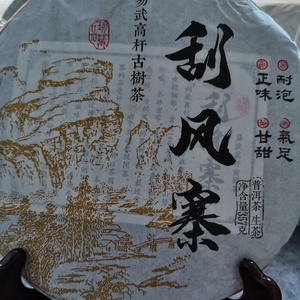 易武高杆古樹茶
刮风寨
正味
耐泡
甘甜
氣足
普洱茶 生茶
净含量357克